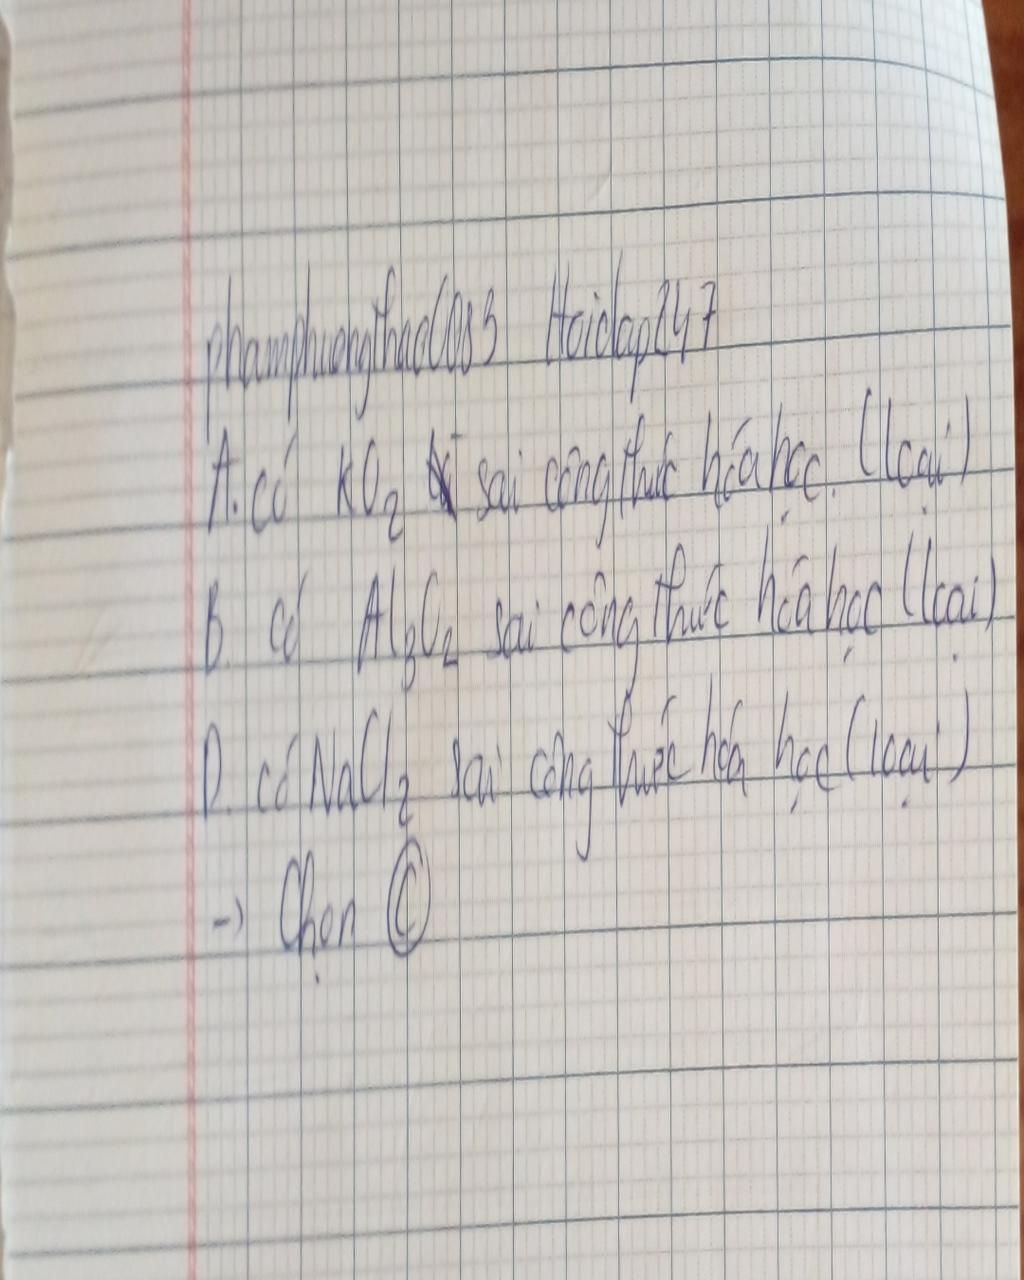 phamphuongthao0883 Hoidap247
A. có KO2 sai công thức hóa học. (loại)
B. có Al3O2 sai công thức hóa học (loại)
D. có NaCl2 sai công thức hóa học (loại)
-> Chọn C